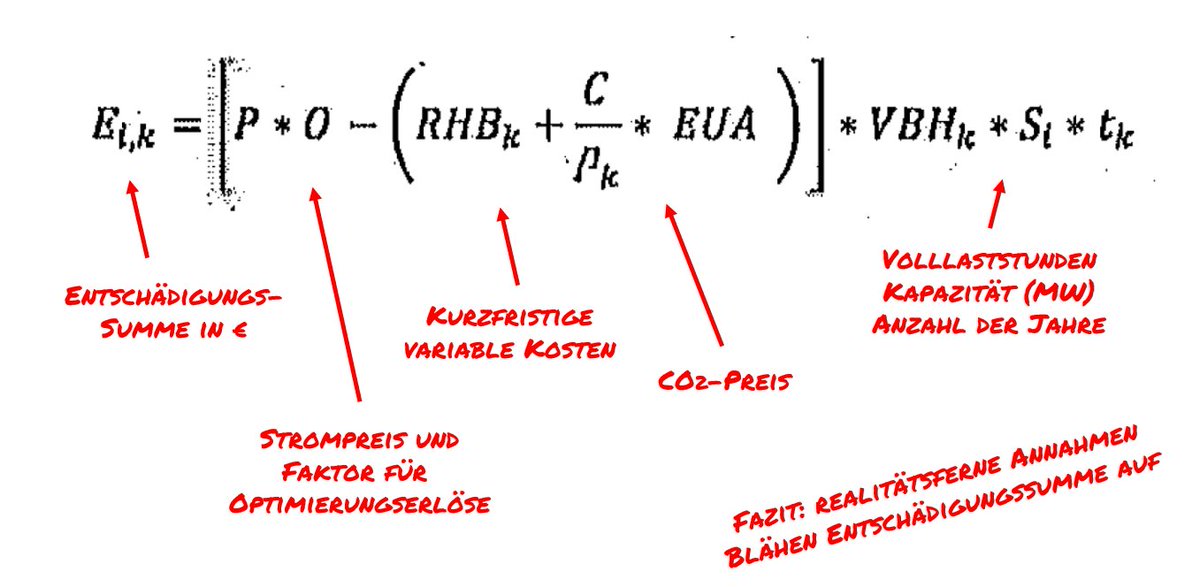 E_{i,k} = [P * O − (RHB_k + C/η_k * EUA)] * VBH_k * S_i * t_k
Entschädigungs-
Summe in €
Strompreis und
Faktor für
Optimierungserlöse
Kurzfristige
variable Kosten
CO2-Preis
Volllaststunden
Kapazität (MW)
Anzahl der Jahre
Fazit: realitätsferne Annahmen
blähen Entschädigungssumme auf